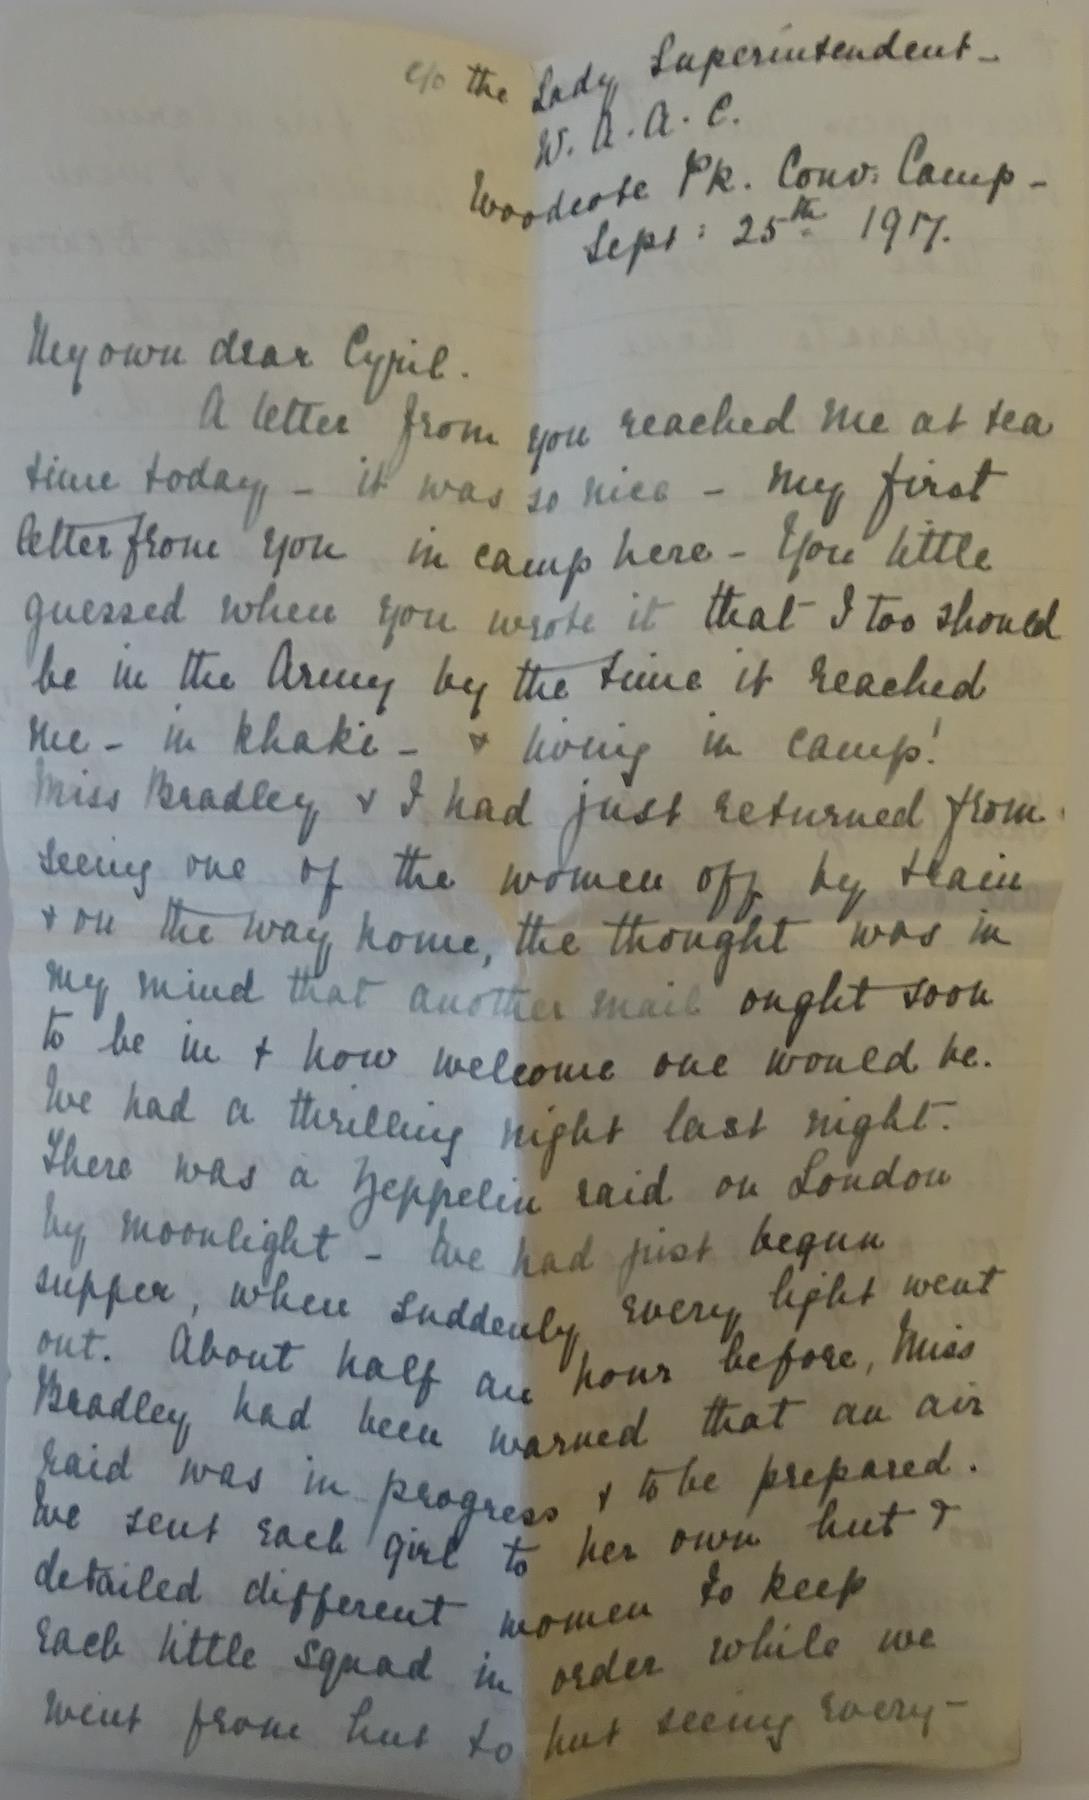 c/o the Lady Superintendent -
W. A. A. C.
Woodcote Pk. Conv: Camp -
Sept: 25th 1917.
My own dear Cyril.
A letter from you reached me at tea
time today - it was so nice - My first
letter from you in camp here - You little
guessed when you wrote it that I too should
be in the Army by the time it reached
me - in khaki - & living in camp!
Miss Bradley & I had just returned from
seeing one of the women off by train
& on the way home, the thought was in
my mind that another mail ought soon
to be in & how welcome one would be.
We had a thrilling night last night.
There was a Zeppelin raid on London
by moonlight - We had just begun
supper, when suddenly every light went
out. About half an hour before, Miss
Bradley had been warned that an air
raid was in progress & to be prepared.
We sent each girl to her own hut &
detailed different women to keep
each little squad in order while we
went from hut to hut seeing every-